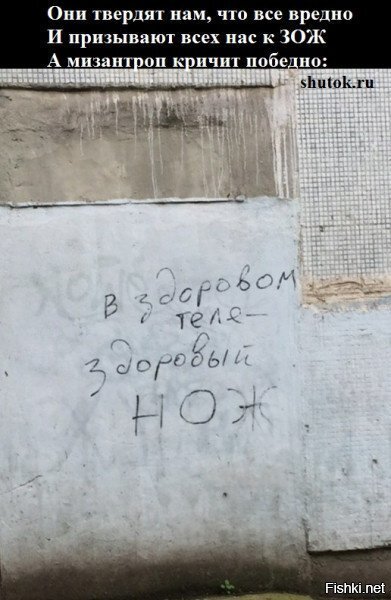 Они твердят нам, что все вредно
И призывают всех нас к ЗОЖ
А мизантроп кричит победно:
shutok.ru
в здоровом
теле-
здоровый
НОЖ
Fishki.net